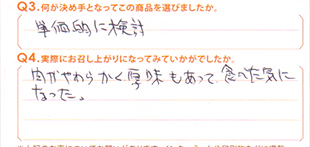 Q3.何が決め手となってこの商品を選びましたか。
単価的に検討
Q4.実際にお召し上がりになってみていかがでしたか。
肉がやわらかく厚味もあって食べた気に
なった。